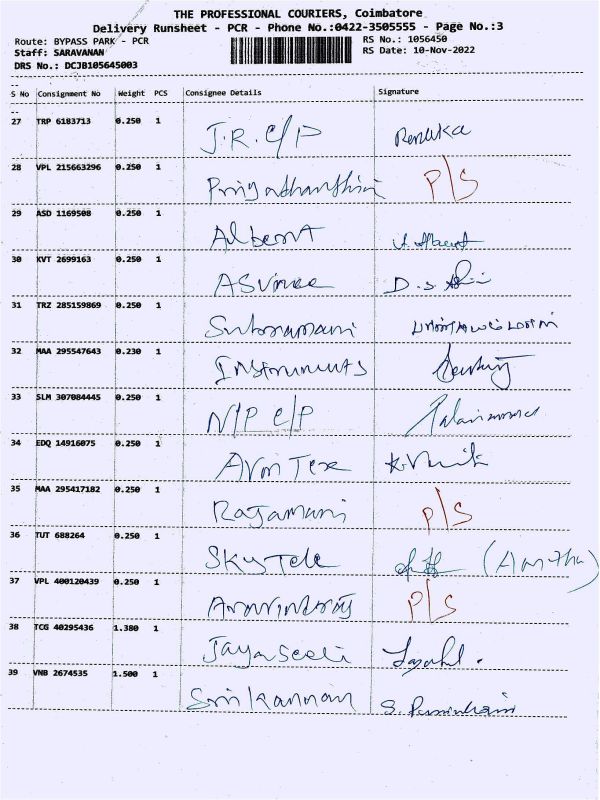 THE PROFESSIONAL COURIERS, Coimbatore
Delivery Runsheet - PCR - Phone No.:0422-3505555 - Page No.:3
Route: BYPASS PARK - PCR RS No.: 1056450
Staff: SARAVANAN RS Date: 10-Nov-2022
DRS No.: DCJB105645003
S No Consignment No Weight PCS Consignee Details Signature
27 TRP 6183713 0.250 1 J.R. C/P Renuka
28 VPL 215663296 0.250 1 P/S
29 ASD 1169508 0.250 1 Albert
30 KVT 2699163 0.250 1 ASvinee
31 TRZ 285159869 0.250 1 Subramani
32 MAA 295547643 0.230 1 Instruments
33 SLM 307084445 0.250 1 N/P C/P
34 EDQ 14916075 0.250 1 Arvi Tex
35 MAA 295417182 0.250 1 Rajamani P/S
36 TUT 688264 0.250 1 Sky Tele
37 VPL 400120439 0.250 1 P/S
38 TCG 40295436 1.380 1 Jayaseeli
39 VNB 2674535 1.500 1 Srikannan